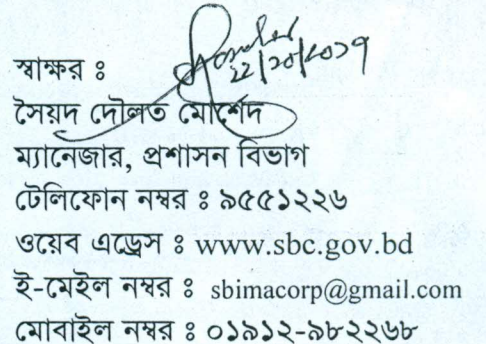 ২২/১০/২০১৭
স্বাক্ষর ঃ
সৈয়দ দৌলত মোর্শেদ
ম্যানেজার, প্রশাসন বিভাগ
টেলিফোন নম্বর ঃ ৯৫৫১২২৬
ওয়েব এড্রেস ঃ www.sbc.gov.bd
ই-মেইল নম্বর ঃ sbimacorp@gmail.com
মোবাইল নম্বর ঃ ০১৯১২-৯৮২২৬৮